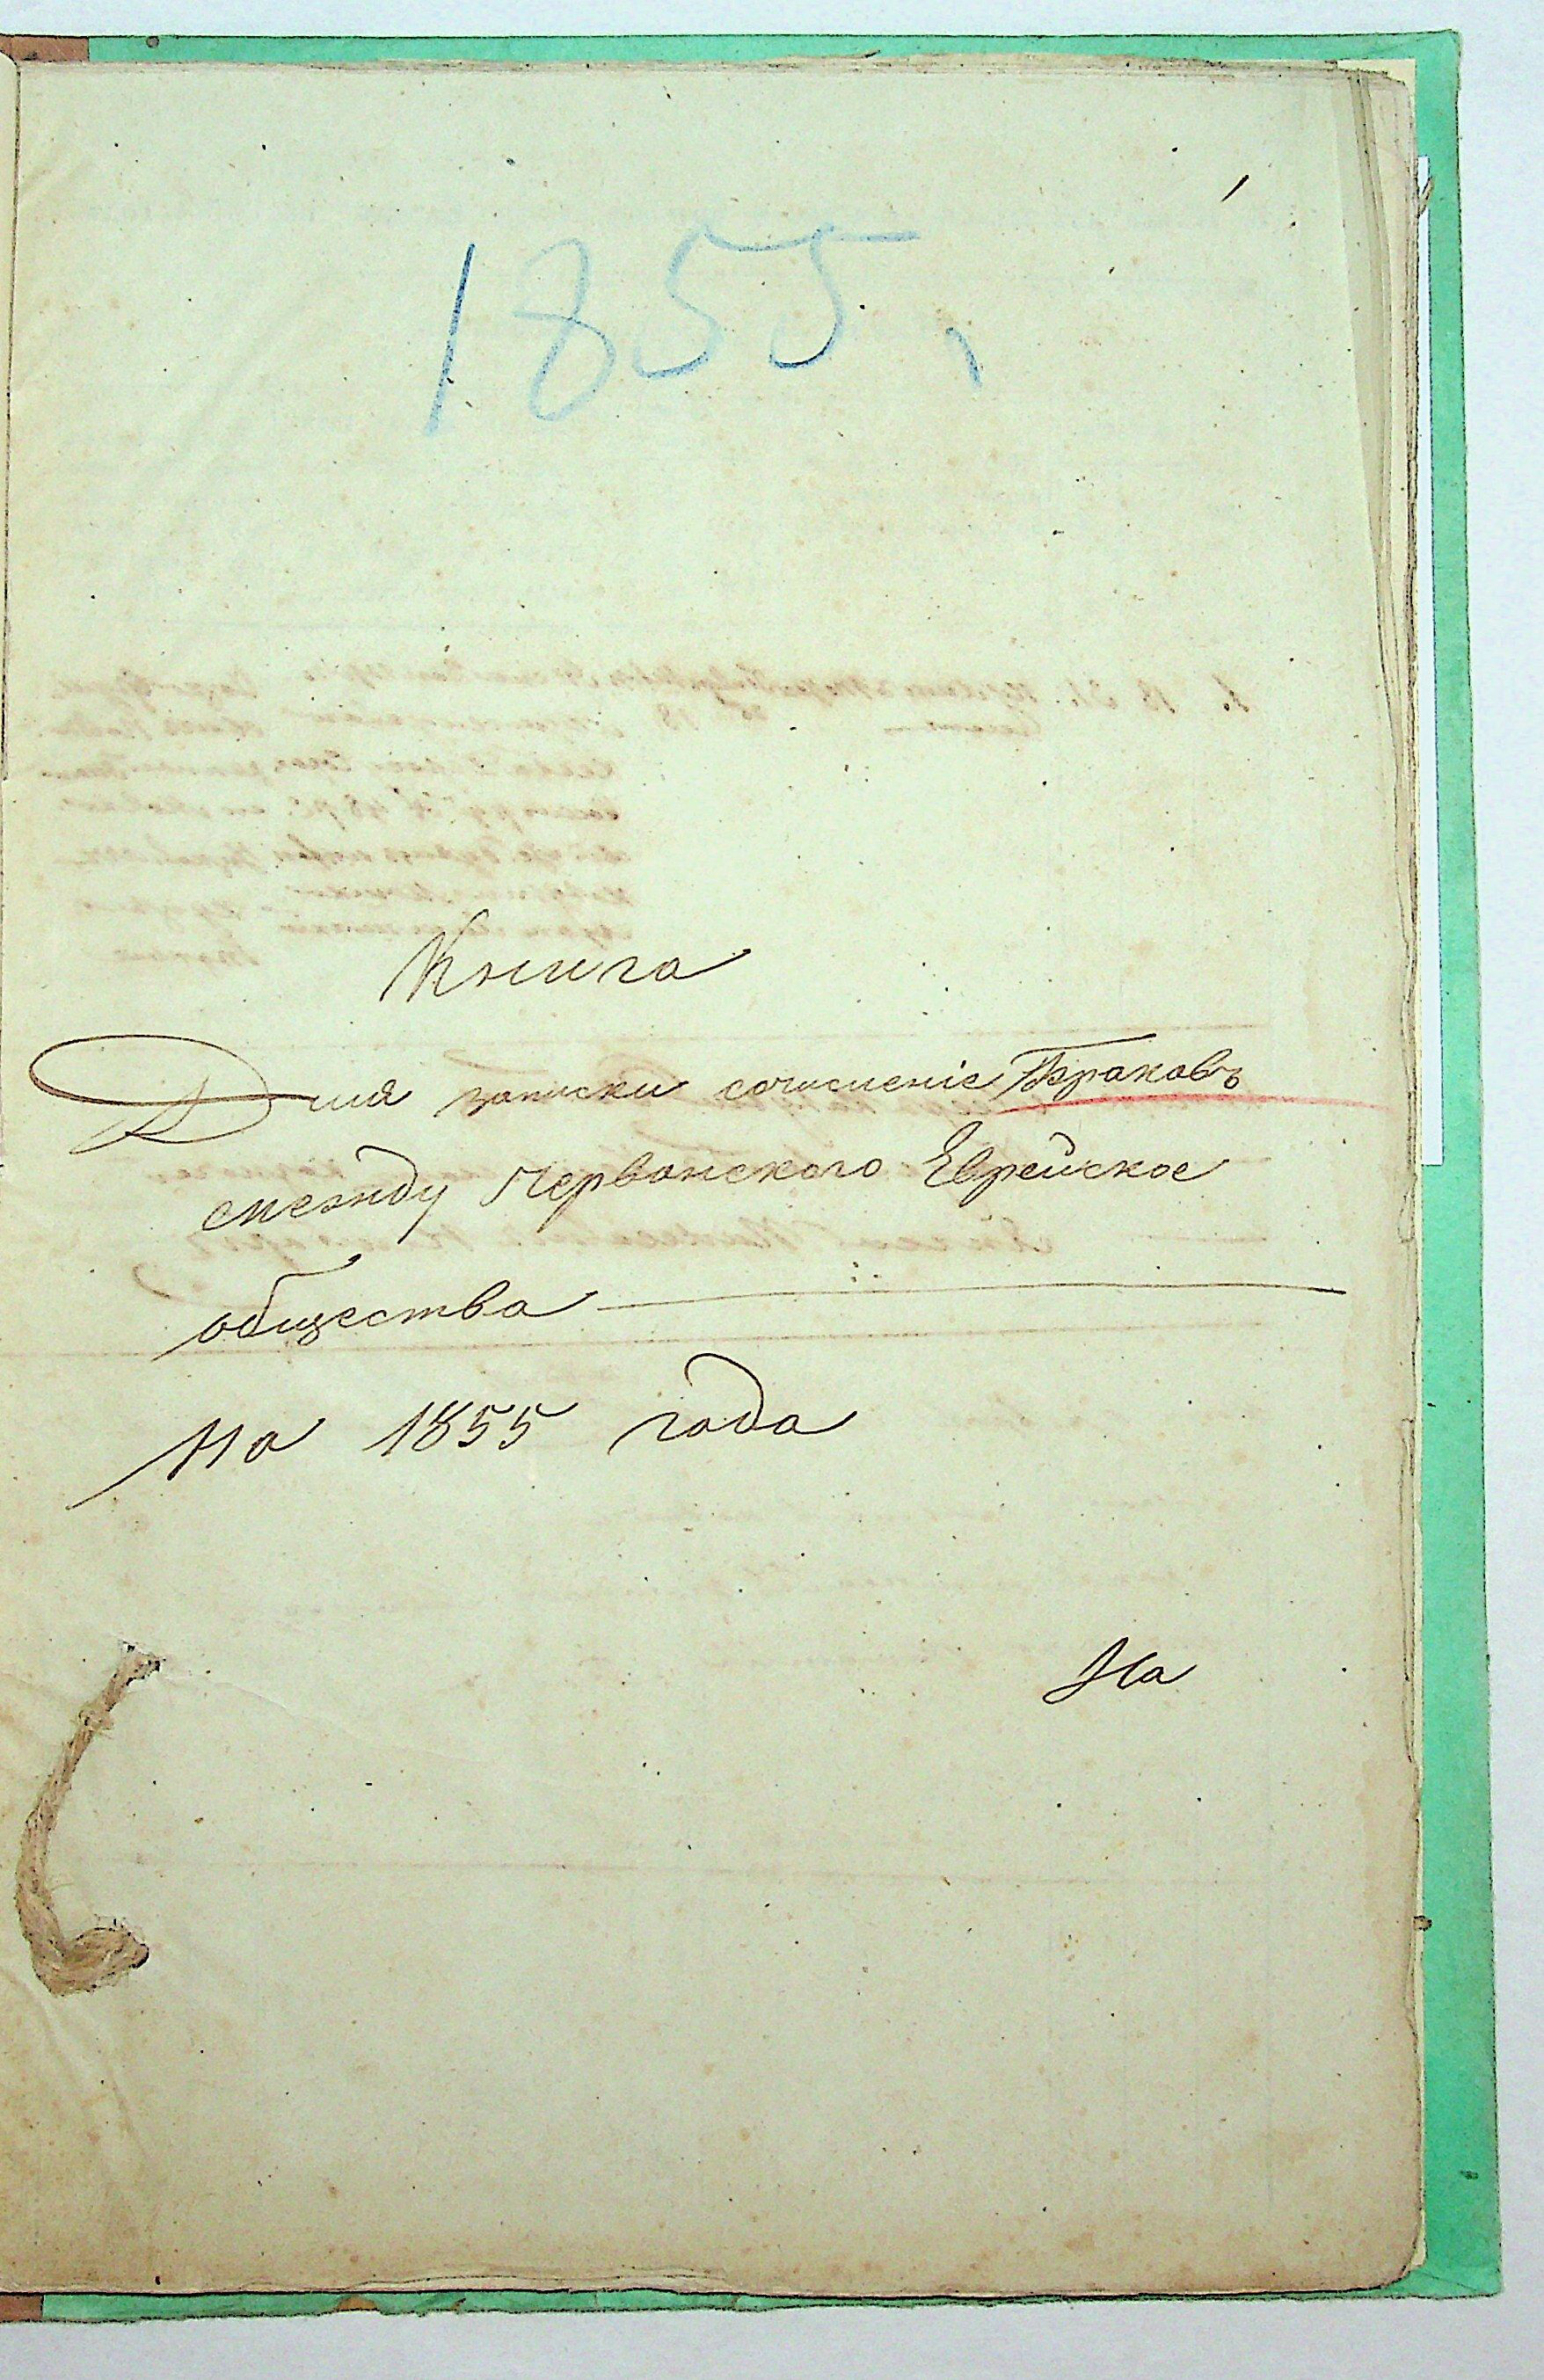 1
1855
Книга
Для записки сочисленіе Браковъ
между Червонского Еврейское
общества
На 1855 года
На